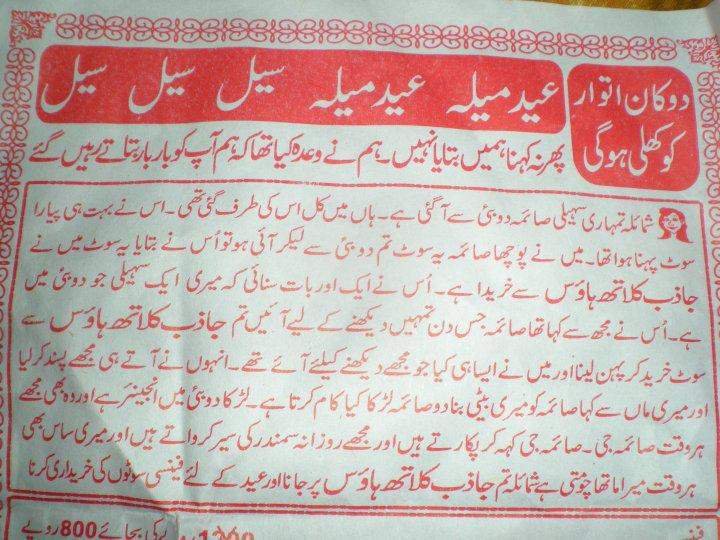 دوکان اتوار
کو کھلی ہوگی
عید میلہ عید میلہ سیل سیل سیل
پھر نہ کہنا ہمیں بتایا نہیں۔ ہم نے وعدہ کیا تھا کہ ہم آپ کو بار بار بتاتے رہیں گے
شمائلہ تمہاری سہیلی صائمہ دوبئی سے آگئی ہے۔ ہاں میں کل اس کی طرف گئی تھی۔ اس نے بہت ہی پیارا
سوٹ پہنا ہوا تھا۔ میں نے پوچھا صائمہ یہ سوٹ تم دوبئی سے لیکر آئی ہو تو اُس نے بتایا یہ سوٹ میں نے
جاذب کلاتھ ہاؤس سے خریدا ہے۔ اُس نے ایک اور بات سنائی کہ میری ایک سہیلی جو دوبئی میں
ہے۔ اُس نے مجھ سے کہا تھا صائمہ جس دن تمہیں دیکھنے کے لیے آئیں تم جاذب کلاتھ ہاؤس سے
سوٹ خرید کر پہن لینا اور میں نے ایسا ہی کیا جو مجھے دیکھنے کیلئے آئے تھے۔ انہوں نے آتے ہی مجھے پسند کرلیا
اور میری ماں سے کہا صائمہ کو میری بیٹی بنا دو صائمہ لڑکا کیا کام کرتا ہے۔ لڑکا دوبئی میں انجینئر ہے اور وہ بھی مجھے
ہر وقت صائمہ جی۔ صائمہ جی کہہ کر پکارتے ہیں اور مجھے روزانہ سمندر کی سیر کرواتے ہیں اور میری ساس بھی
ہر وقت میرا ماتھا چومتی ہے شمائلہ تم جاذب کلاتھ ہاؤس پر جانا اور عید کے لئے فینسی سوٹوں کی خریداری کرنا
کی بجائے 800 روپے